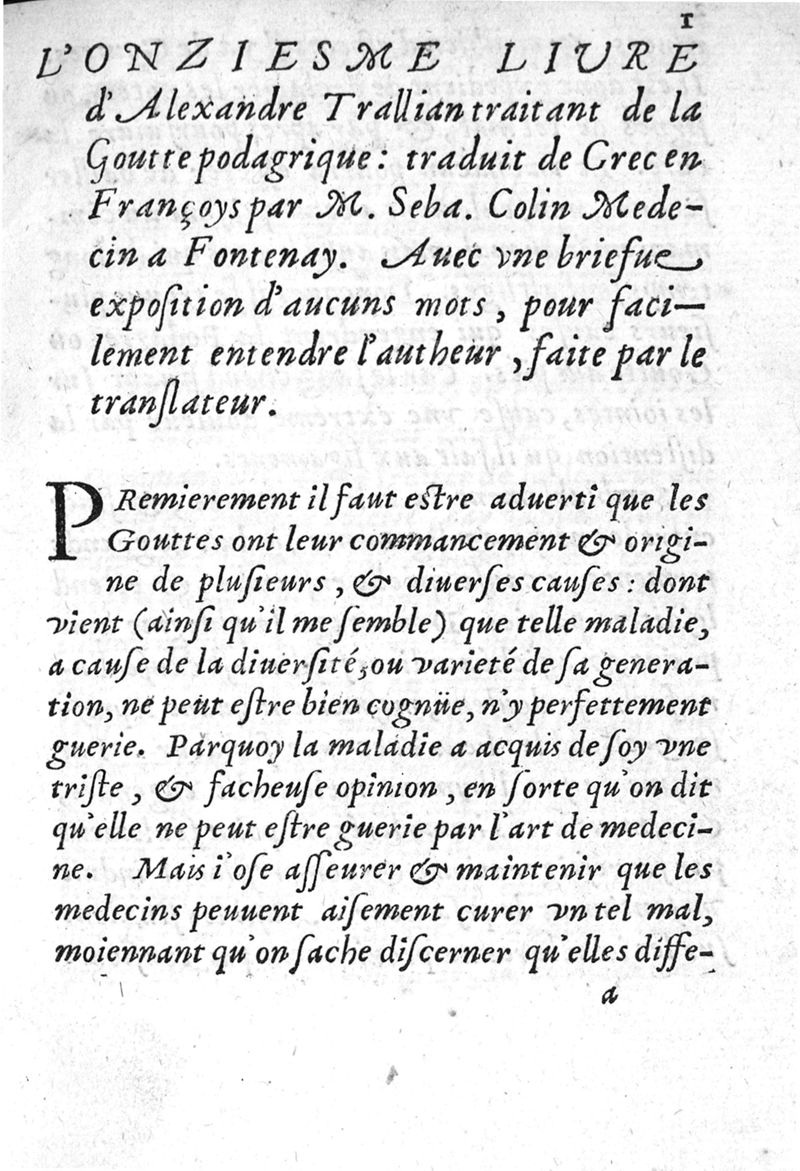 1
L'ONZIESME LIURE
d'Alexandre Trallian traitant de la
Goutte podagrique : traduit de Grec en
Françoys par M. Seba. Colin Mede-
cin a Fontenay. Auec vne briefue
expoſition d'aucuns mots, pour faci-
lement entendre l'autheur, faite par le
tranſlateur.
PRemierement il faut eſtre aduerti que les
Gouttes ont leur commancement & origi-
ne de pluſieurs, & diuerſes cauſes : dont
vient (ainſi qu'il me ſemble) que telle maladie,
a cauſe de la diuerſité, ou varieté de ſa genera-
tion, ne peut eſtre bien cognüe, n'y perfettement
guerie. Parquoy la maladie a acquis de ſoy vne
triſte, & facheuſe opinion, en ſorte qu'on dit
qu'elle ne peut eſtre guerie par l'art de medeci-
ne. Mais i'oſe aſſeurer & maintenir que les
medecins peuuent aiſement curer vn tel mal,
moiennant qu'on ſache diſcerner qu'elles diffe-
a